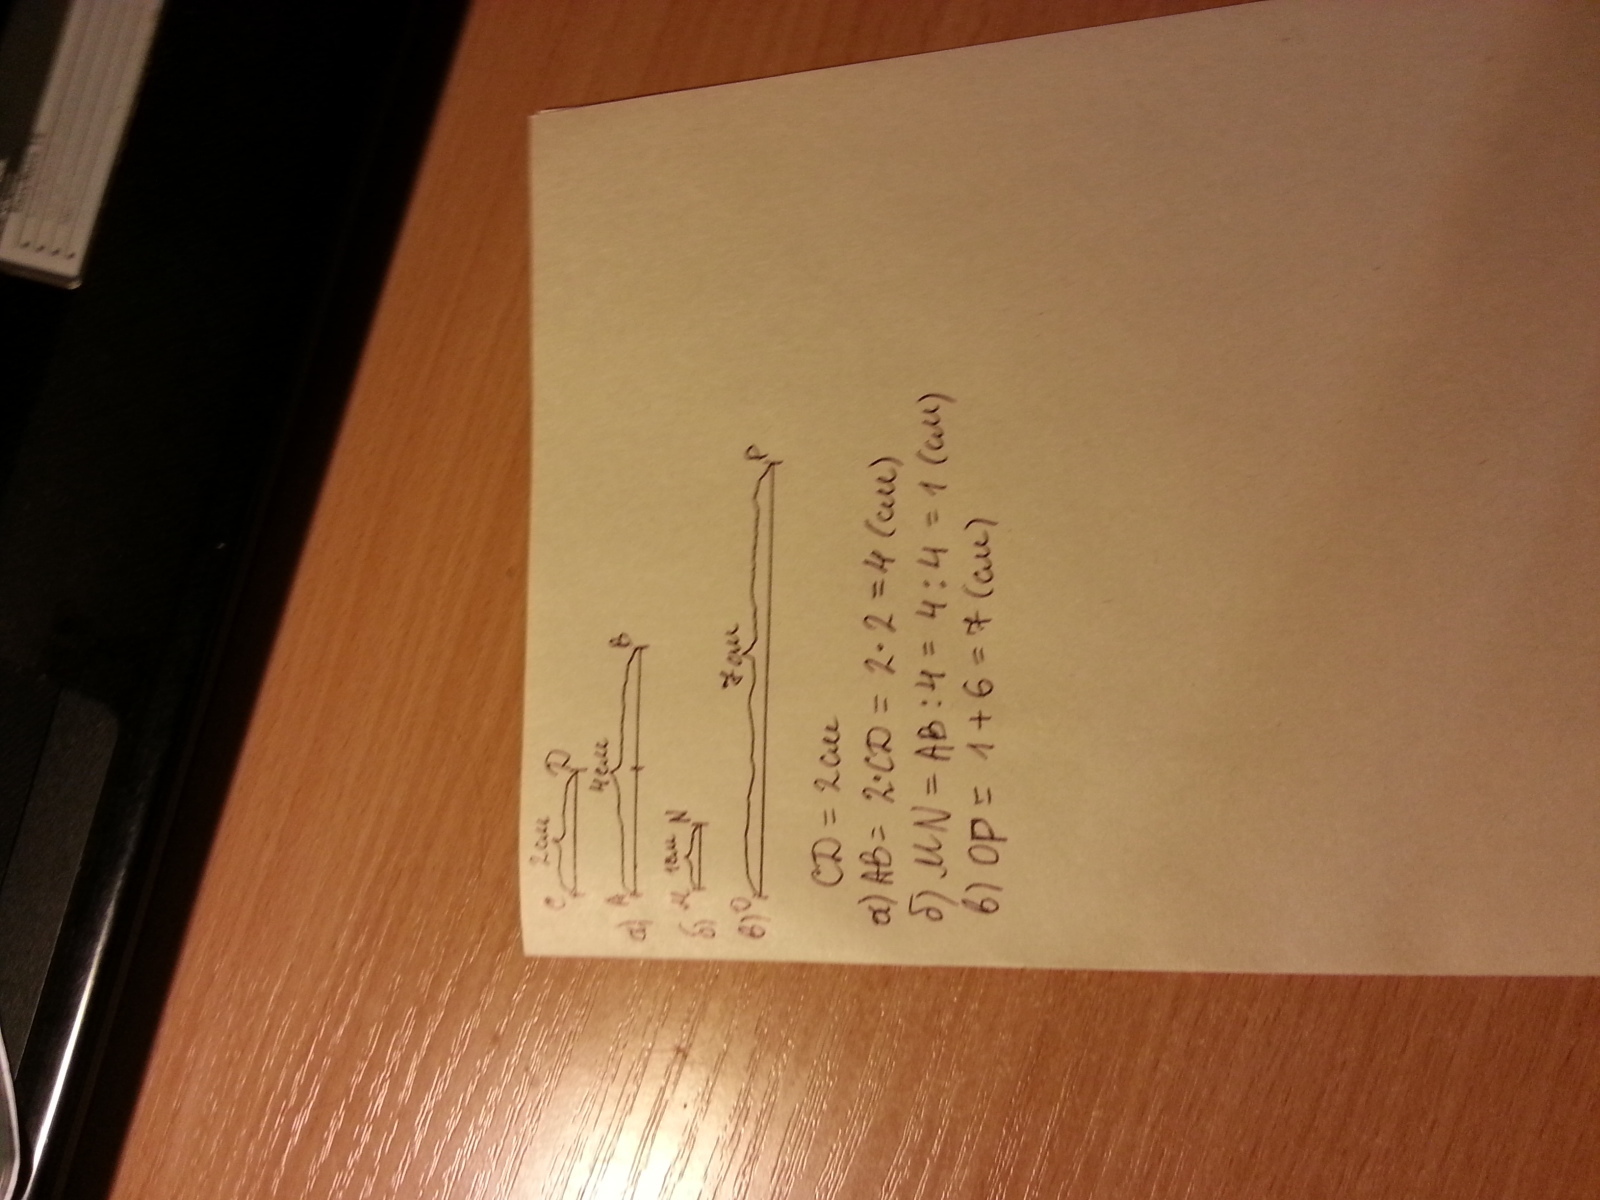 2см
C D
4см
а) A B
1см
б) M N
7см
в) O P
CD = 2см
а) AB = 2·CD = 2·2 = 4 (см)
б) MN = AB : 4 = 4 : 4 = 1 (см)
в) OP = 1 + 6 = 7 (см)